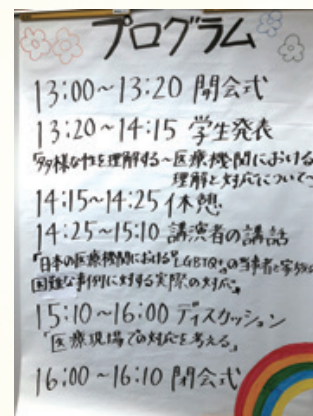 プログラム
13:00~13:20 開会式
13:20~14:15 学生発表
『多様な性を理解する~医療機関における
理解と対応について~
14:15~14:25 休憩
14:25~15:10 講演者の講話
『日本の医療機関におけるLGBTQ+の当事者と家族の
困難な事例に対する実際の対応』
15:10~16:00 ディスカッション
『医療現場での対応を考える』
16:00~16:10 閉会式